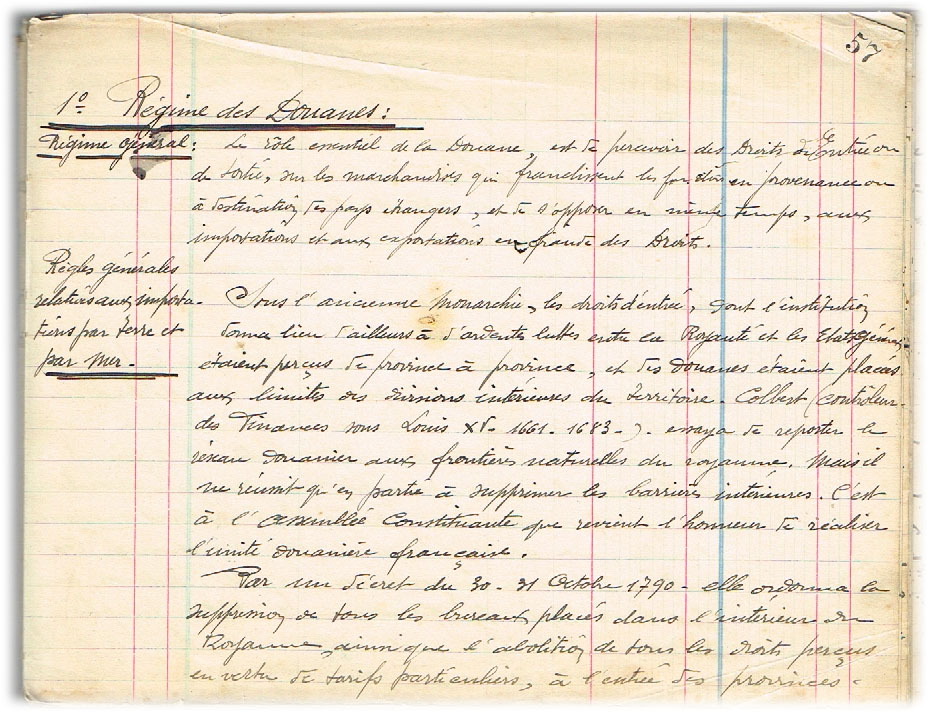 57
1º Régime des Douanes:
Régime général:
Le rôle essentiel de la Douane, est de percevoir des Droits d'Entrée ou
de sortie, sur les marchandises qui franchissent les en provenance ou
à destination des pays étrangers, et de s'opposer en même temps, aux
importations et aux exportations en fraude des Droits.
Règles générales
relatives aux importa-
tions par terre et
par mer-
Sous l'ancienne Monarchie, les droits d'entrée, dont l'institution
donna lieu d'ailleurs à d'ardentes luttes entre la Royauté et les Etats Généraux
étaient perçus de province à province, et des douanes étaient placées
aux limites des divisions intérieures du territoire. Colbert (contrôleur-
des Finances sous Louis 1661-1683-). essaya de reporter le
réseau douanier aux frontières naturelles du royaume. Mais il
ne réussit qu'en partie à supprimer les barrières intérieures. C'est
à l'assemblée Constituante que revient l'honneur de réaliser
l'unité douanière française.
Par un décret du 30-31 Octobre 1790- elle ordonna la
suppression de tous les bureaux placés dans l'intérieur du
Royaume, ainsi que l'abolition de tous les droits perçus
en vertu de tarifs particuliers, à l'entrée des provinces-